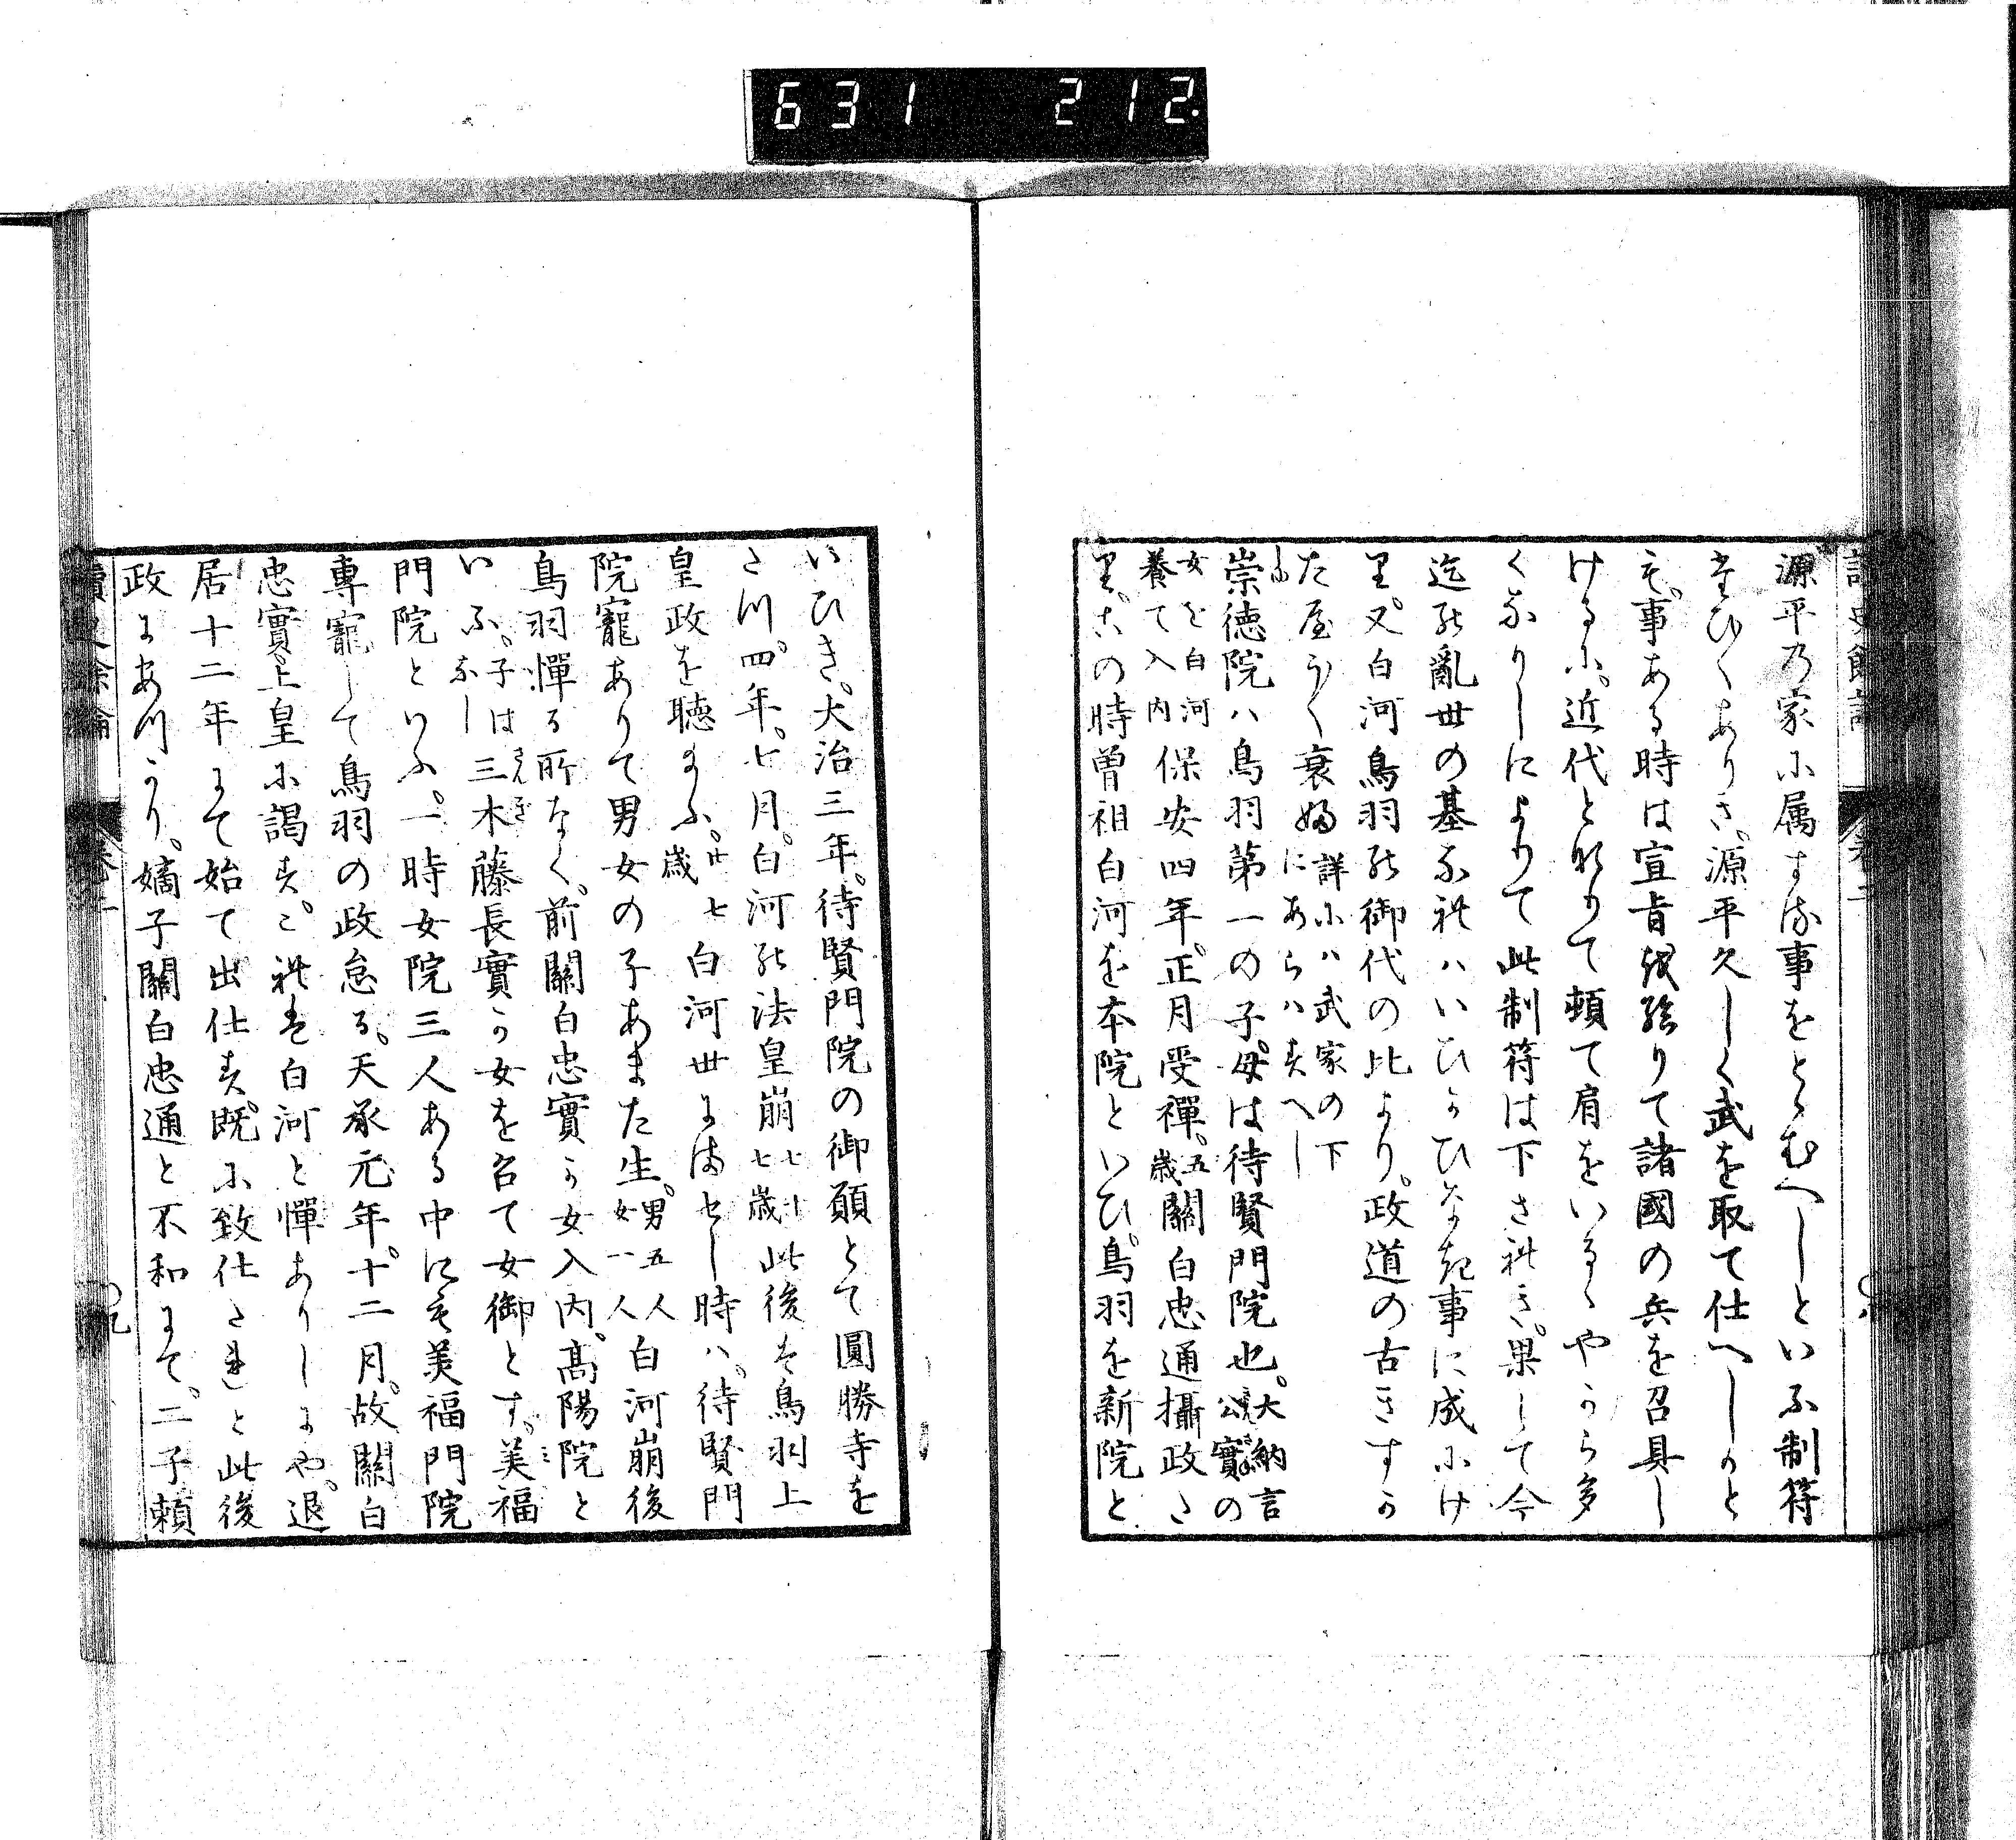 631 212.
源平乃家に属する事をとゝむへしといふ制符
たひ〱ありき。源平久しく武を取て仕へしかと
も。事ある時は宣旨を給りて諸國の兵を召具し
けるに。近代となりて頓て肩をいるゝやから多
くなりしによりて此制符は下されき。果して今
迄の亂世の基なれハいひかひなき事に成にけ
り。又白河鳥羽の御代の比より。政道の古きすか
たやう〱衰ふ 詳にハ武家の下
にあらハすへし
崇徳院ハ鳥羽第一の子。母は待賢門院也。大納言
公實の
女を白河
養て入内 保安四年。正月受禪。五
歳 關白忠通攝政た
り。この時曽祖白河を本院といひ。鳥羽を新院と
いひき。大治三年。待賢門院の御願とて圓勝寺を
たつ。四年。七月。白河の法皇崩 七十
七歳 此後は鳥羽上
皇政を聴給ふ。廿七
歳 白河世にませし時ハ。待賢門
院寵ありて男女の子あまた生。男五人
女一人 白河崩後
鳥羽憚る所なく。前關白忠實か女入内。高陽院と
いふ。子
なし は三木藤長實か女を召て女御とす。美福
門院といふ。一時女院三人ある中にも美福門院
專寵して鳥羽の政怠る。天承元年。十二月。故關白
忠實上皇に謁す。これも白河と憚ありしにや。退
居十二年にて始て出仕す。既に致仕たれと此後
政にあつかり。嫡子關白忠通と不和にて。二子頼
讀史餘論 卷二 九